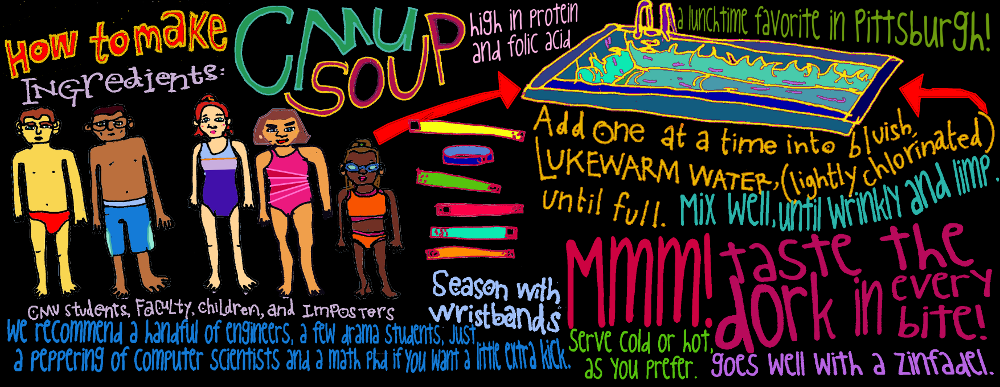 HOW to make
CMU
SOUP
Ingredients:
high in protein
and folic acid
a lunchtime favorite in Pittsburgh!
Add one at a time into bluish,
LUKEWARM WATER, (lightly chlorinated)
until full.
Mix well, until wrinkly and limp.
CMU students, Faculty, children, and Imposters
We recommend a handful of engineers, a few drama students, just
a peppering of computer scientists and a math Phd if you want a little extra kick.
Season with
wristbands
MMM!
taste the
dork in every
bite!
Serve cold or hot,
as you prefer.
goes well with a zinfadel.